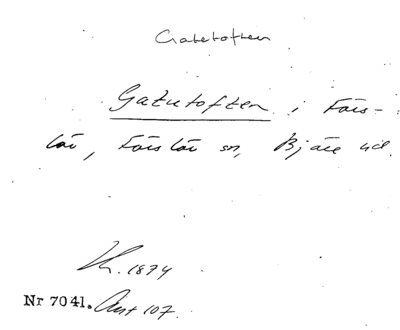 Gatetoften
Gatutoften i Förs-
löv, Förslöv sn, Bjäre hd.
1874
Nr 7041. Avst 107.